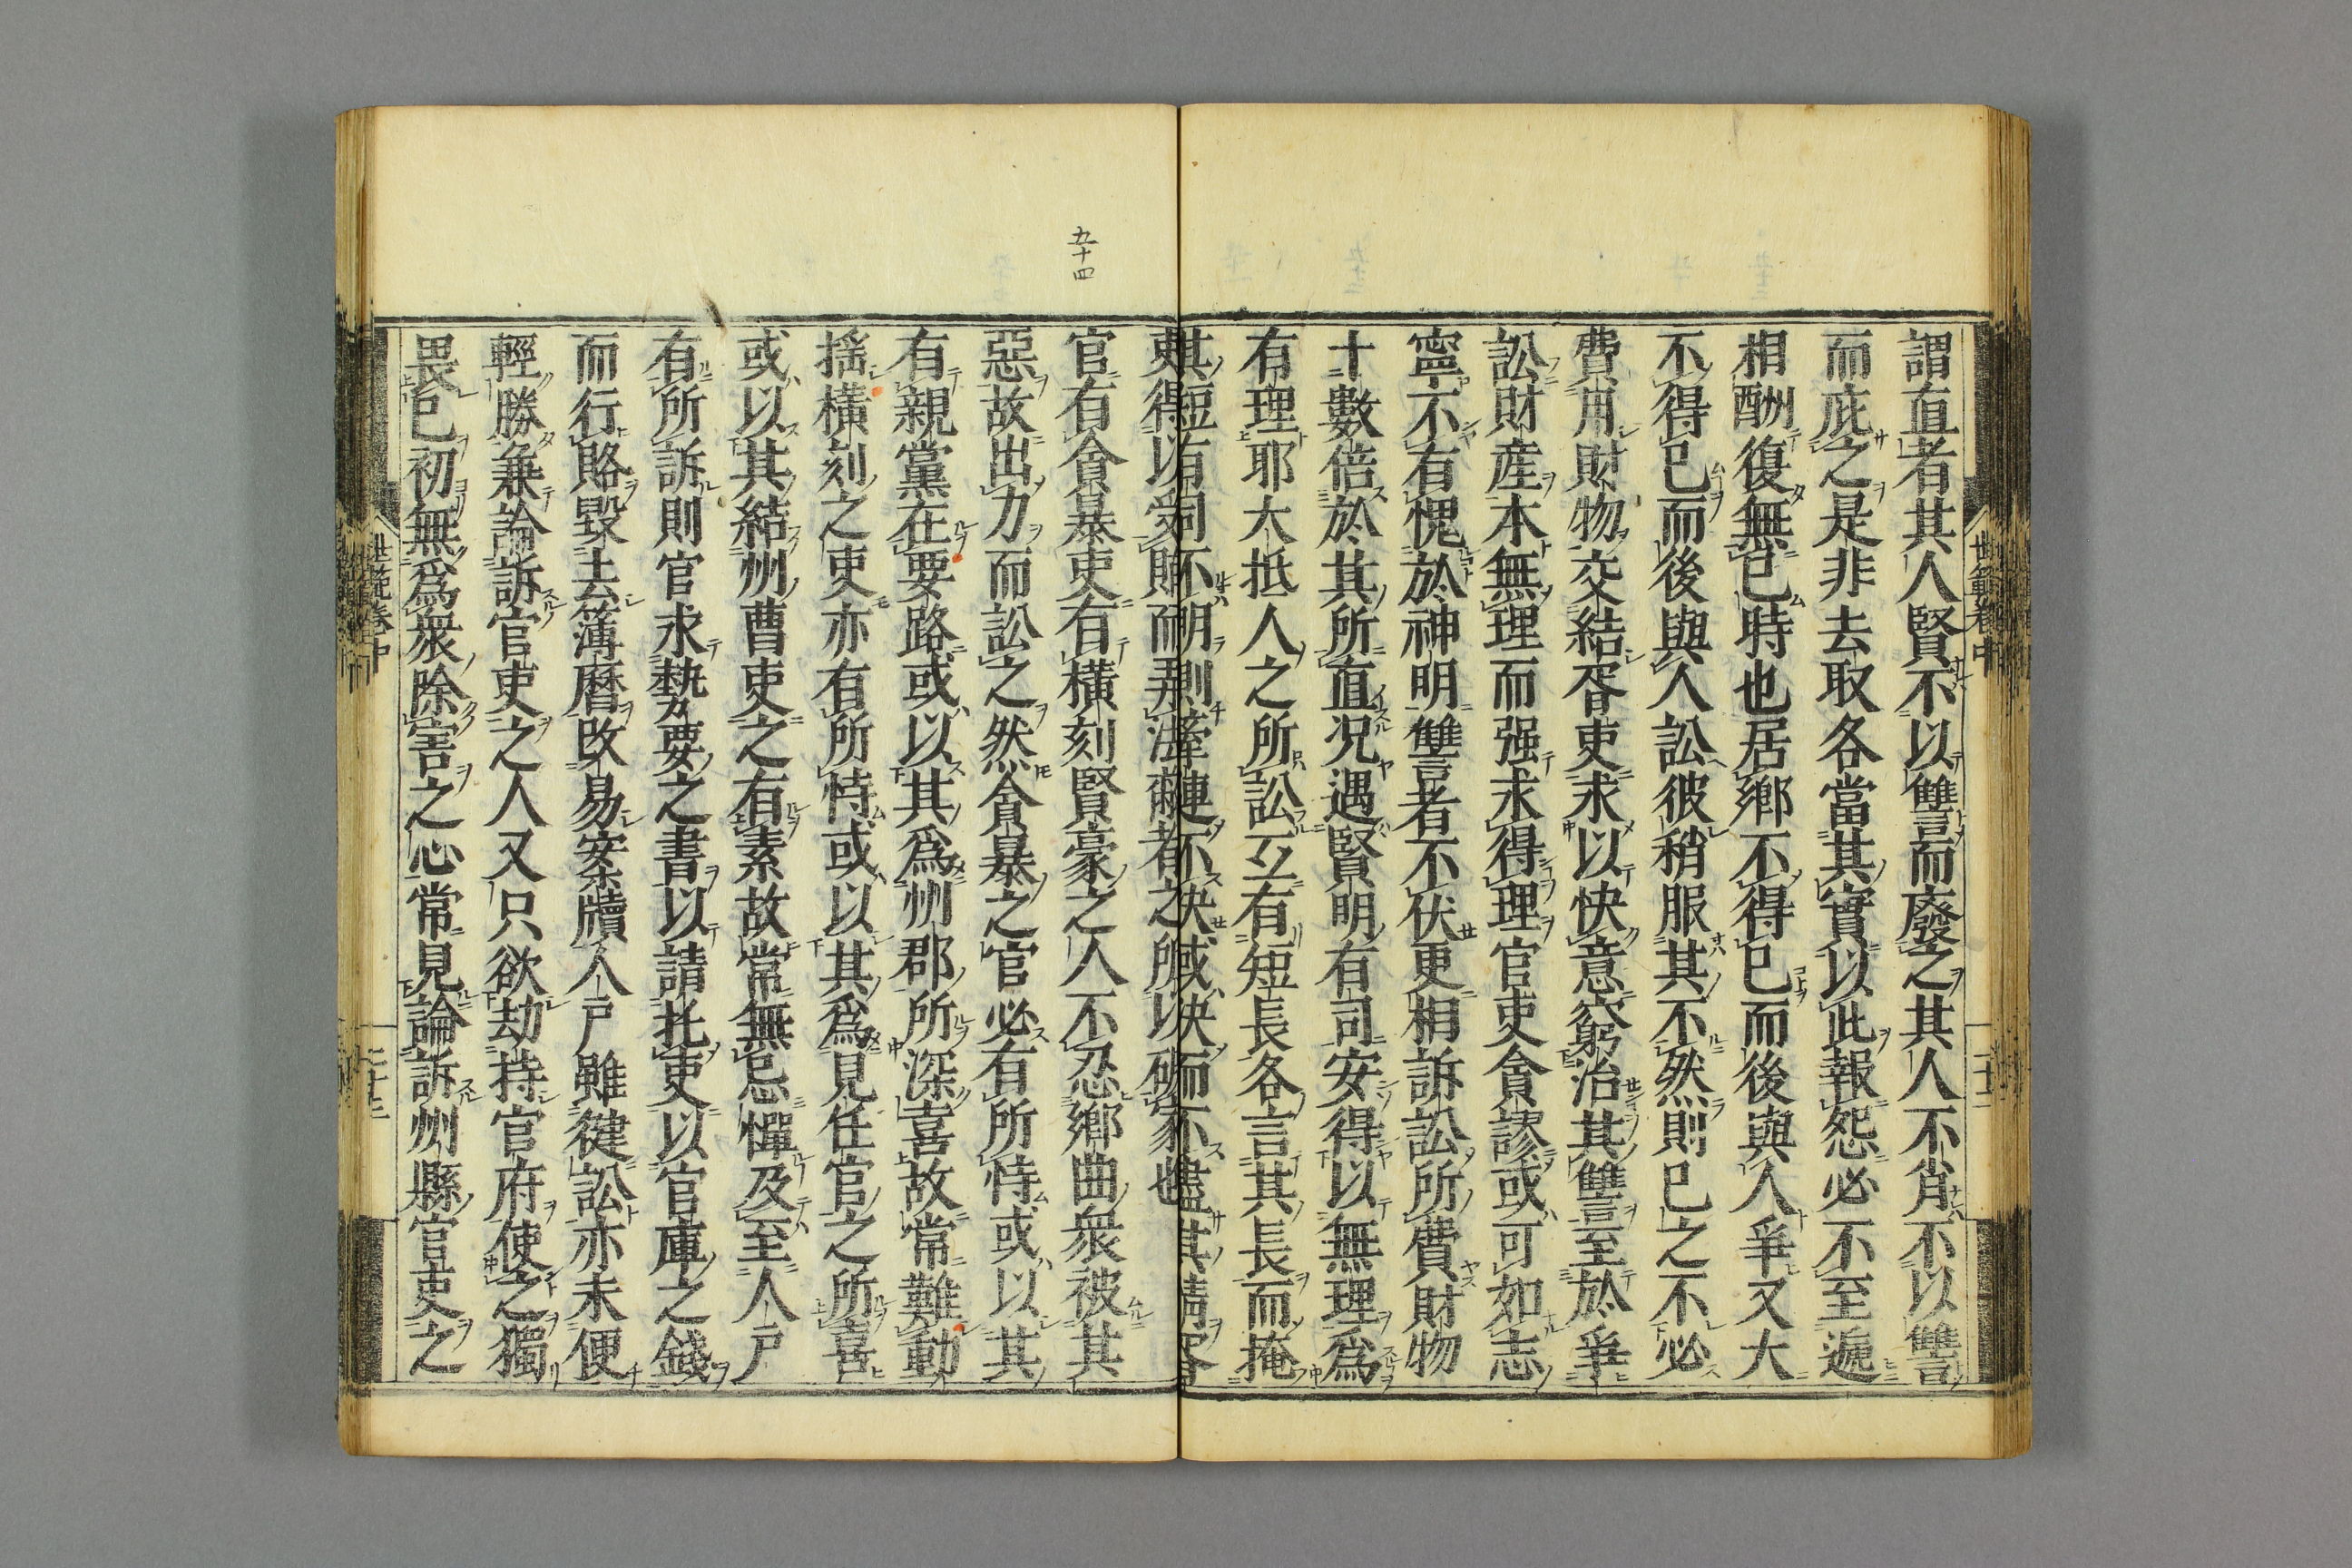 謂直者其人賢不以讐而廢之其人不肖不以讐
而庇之是非去取各當其實以此報怨必不至遞
相酬復無已時也居鄉不得已而後與人爭又大
不得已而後與人訟彼稍服其不然則已之不必
費用財物交結胥吏求以快意窮治其讐至於爭
訟財産本無理而强求得理官吏貪謬或可如志
寧不有愧於神明讐者不伏更相訴訟所費財物
十數倍於其所直况遇賢明有司安得以無理爲
有理耶大抵人之所訟互有短長各言其長而掩
其短有司不明則牽連不决或决而不盡其情胥
吏得以受賕而弄法蔽者之所以破家也
官有貪暴吏有橫刻賢豪之人不忍鄉曲衆被其
惡故出力而訟之然貪暴之官必有所恃或以其
有親黨在要路或以其爲州郡所深喜故常難動
搖橫刻之吏亦有所恃或以其爲見任官之所喜
或以其結州曹吏之有素故常無忌憚及至人戶
有所訴則官求勢要之書以請托吏以官庫之錢
而行賂毀去簿曆改易案牘人戶雖健訟亦未便
輕勝兼論訴官吏之人又只欲劫持官府使之獨
畏已初無爲衆除害之心常見論訴州縣官吏之
世範卷中
二十二
世範卷中
二十三
五十四